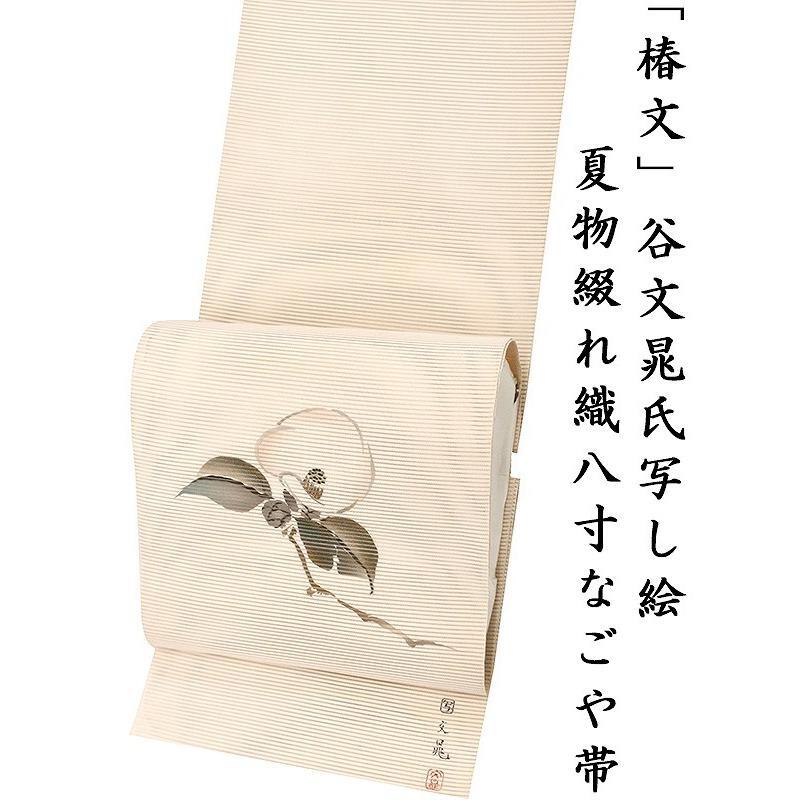 「椿文」谷文晁氏写し絵
夏物綴れ織八寸なごや帯
写
文晁